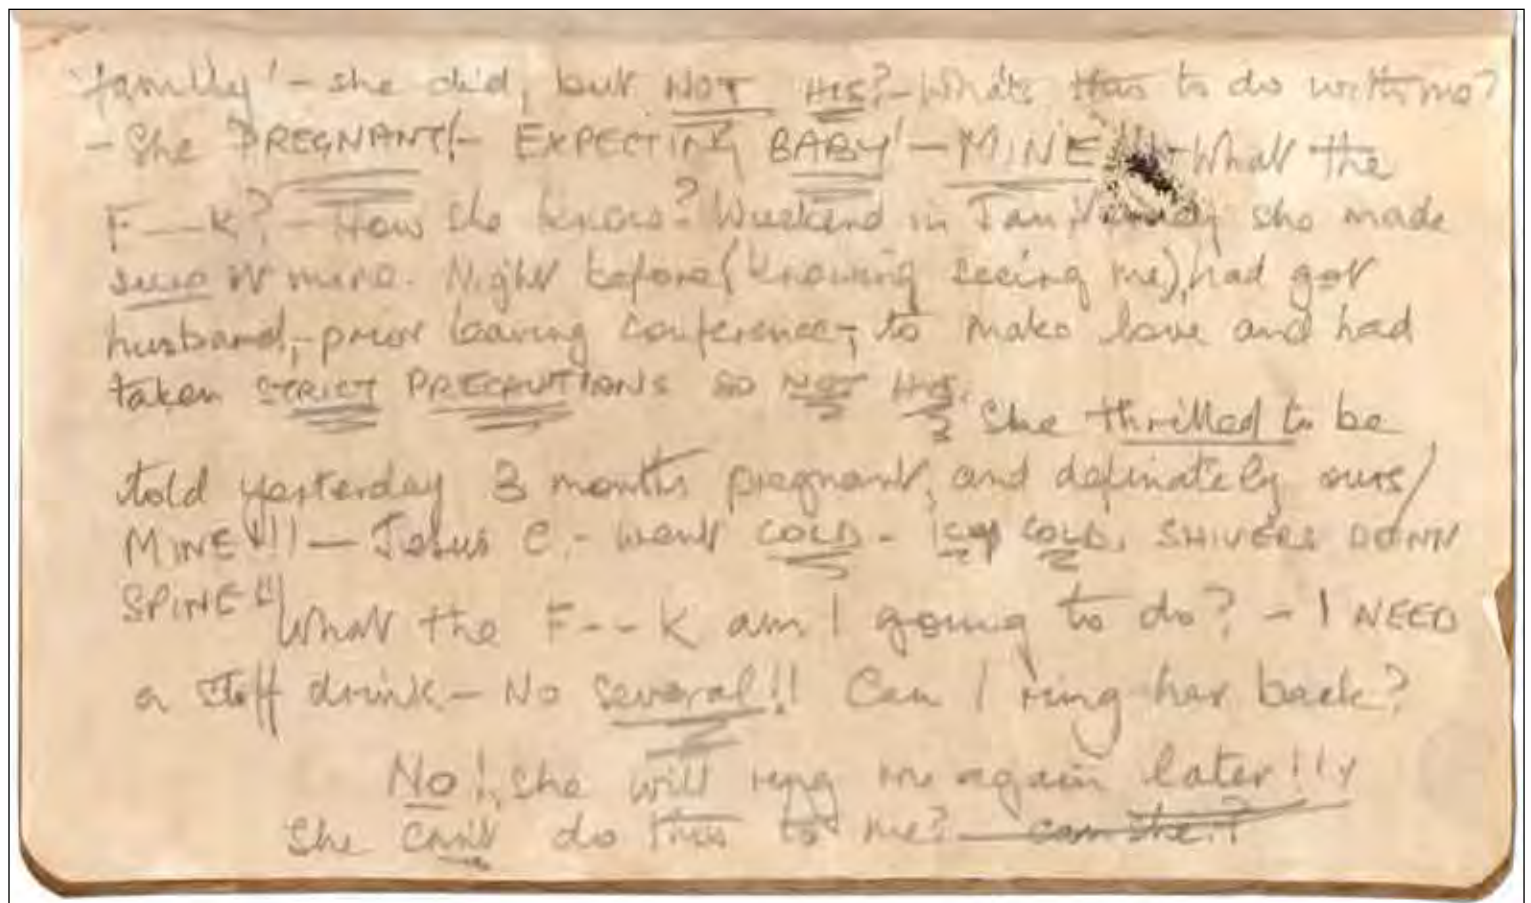 'family' - she did, but NOT HIS? - What's this to do with me?
- She PREGNANT! - EXPECTING BABY! - MINE !!! - What the
F--K? - How she know? Weekend in Jan she made
sure it mine. Night before (knowing seeing me), had got
husband, - prior leaving conference, - to make love and had
taken STRICT PRECAUTIONS so NOT HIS. She thrilled to be
told yesterday 3 months pregnant, and definately ours/
MINE!!! - Jesus C. - went COLD - Icy COLD, SHIVERS DOWN
SPINE!! What the F--K am I going to do? - I NEED
a stiff drink - No several!! Can I ring her back?
No!, she will ring me again later!!!
She can't do this to me? can she?